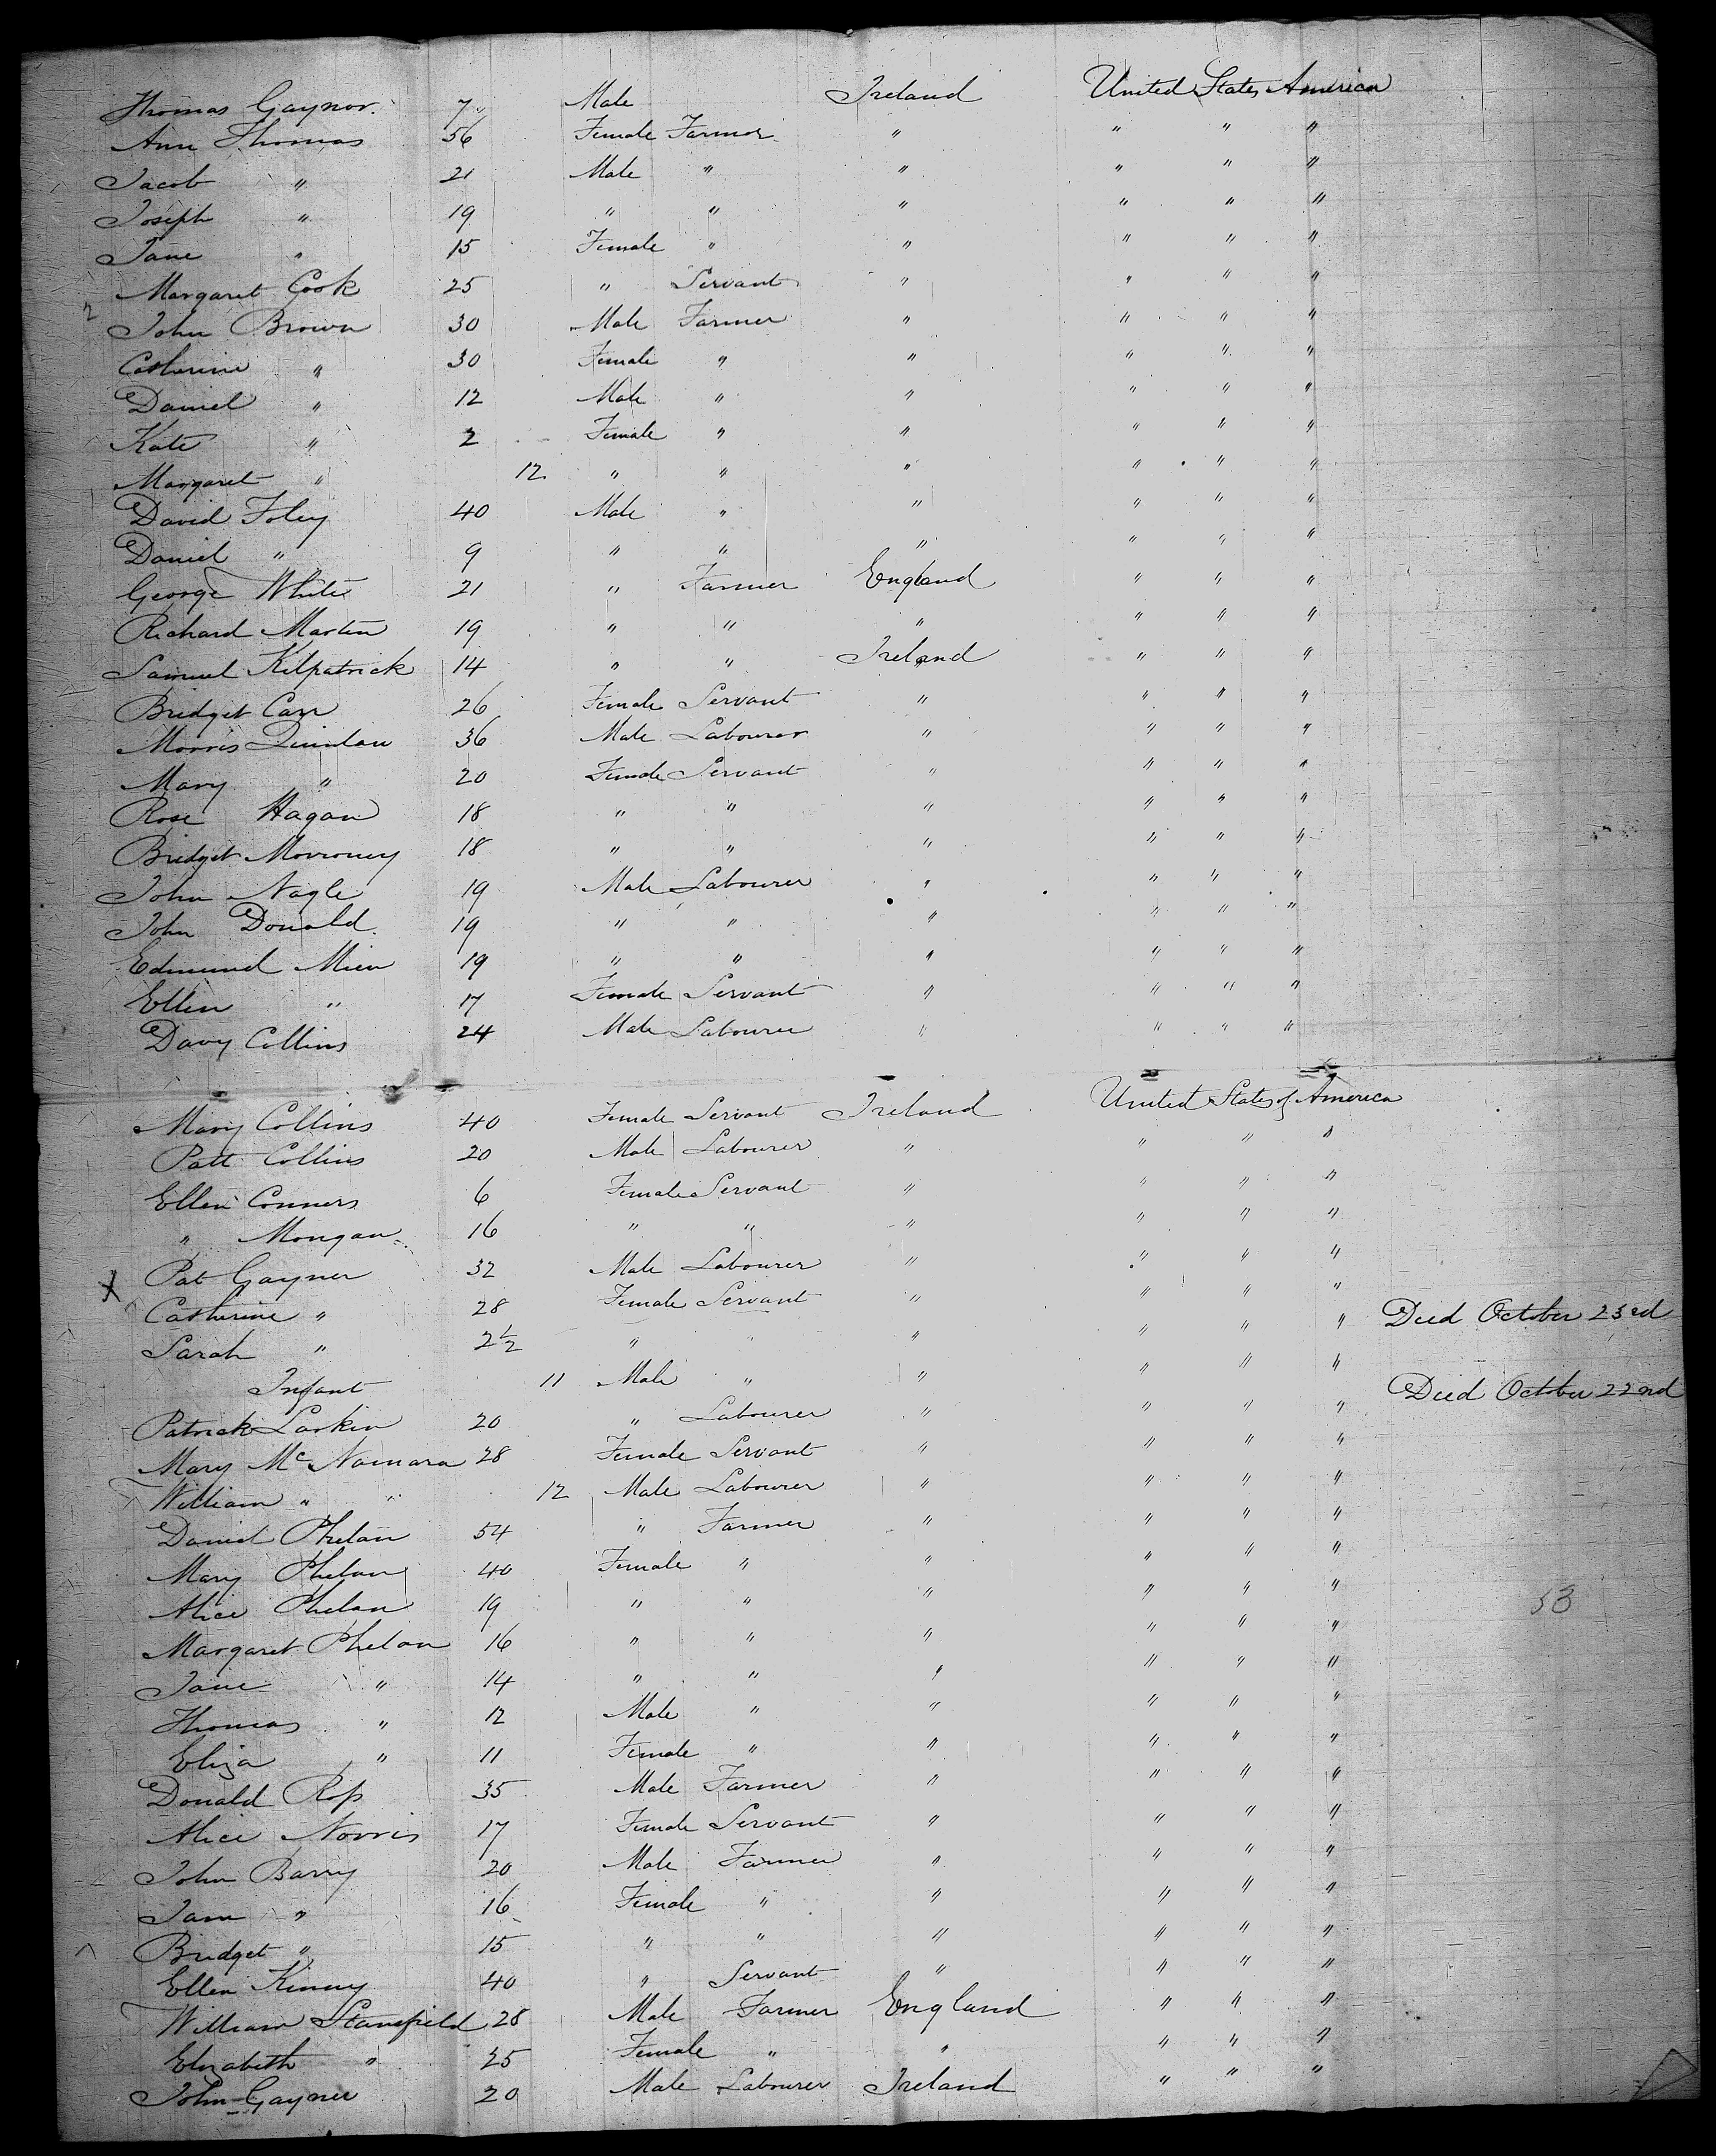 Thomas Gaynor. 7 Male Ireland United States America
Ann Thomas 56 Female Farmer " " " "
Jacob " 21 Male " " " " "
Joseph " 19 " " " " " "
Jane " 15 Female " " " " "
Margaret Cook 25 " Servant " " " "
John Brown 30 Male Farmer " " " "
Catherine " 30 Female " " " " "
Daniel " 12 Male " " " " "
Kate " 2 Female " " " " "
Margaret " 12 " " " " " "
David Foley 40 Male " " " " "
Daniel " 9 " " " " " "
George White 21 " Farmer England " " "
Richard Martin 19 " " " " " "
Samuel Kilpatrick 14 " " Ireland " " "
Bridget Carr 26 Female Servant " " " "
Morris Quinlan 36 Male Labourer " " " "
Mary " 20 Female Servant " " " "
Rose Hagan 18 " " " " " "
Bridget Morroney 18 " " " " " "
John Nagle 19 Male Labourer " " " "
John Donald 19 " " " " " "
Edmund 19 " " " " " "
Ellen " 17 Female Servant " " " "
Davy Collins 24 Male Labourer " " " "
Mary Collins 40 Female Servant Ireland United States of America
Patt Collins 20 Male Labourer " " " "
Ellen Conners 6 Female Servant " " " "
" Mongan 16 " " " " " "
X Pat Gayner 32 Male Labourer " " " "
Catherine " 28 Female Servant " " " "
Sarah " 2½ " " " " " " Died October 23rd
Infant 11 Male " " " " "
Patrick Larkin 20 " Labourer " " " " Died October 22nd
Mary Mc Namara 28 Female Servant " " " "
William " " 12 Male Labourer " " " "
Daniel Phelan 54 " Farmer " " " "
Mary Phelan 40 Female " " " " "
Alice Phelan 19 " " " " " "
53
Margaret Phelan 16 " " " " " "
Jane " 14 " " " " " "
Thomas " 12 Male " " " " "
Eliza " 11 Female " " " " "
Donald Ross 35 Male Farmer " " " "
Alice Norris 17 Female Servant " " " "
John Barry 20 Male Farmer " " " "
Jane " 16 Female " " " " "
Bridget " 15 " " " " " "
Ellen Kinny 40 " Servant " " " "
William Stansfield 28 Male Farmer England " " "
Elizabeth " 25 Female " " " " "
John Gayner 20 Male Labourer Ireland " " "